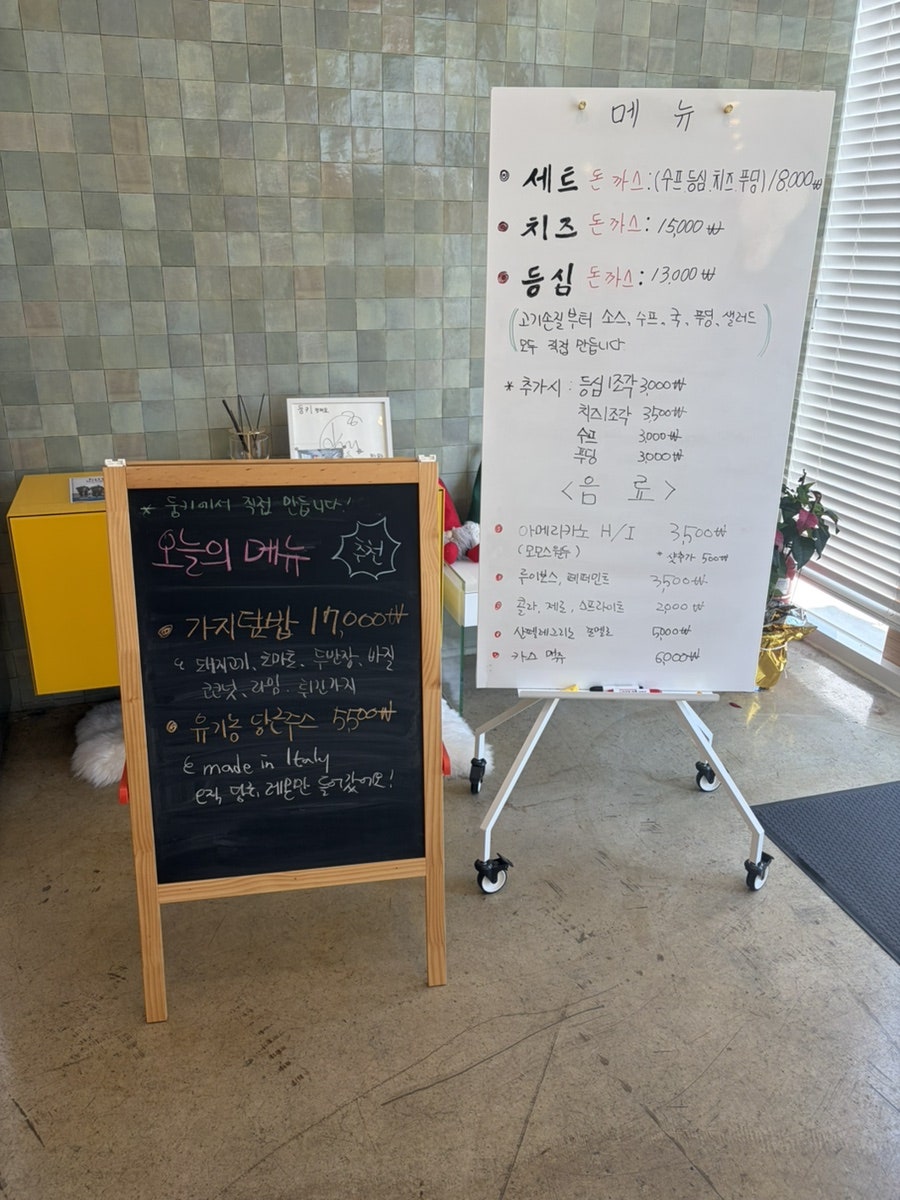 * 둥키에서 직접 만듭니다!
오늘의 메뉴
추천
가지덮밥 17,000₩
돼지고기, 토마토, 두반장, 바질
코코넛, 라임, 튀긴가지
유기농 당근주스 5,500₩
made in Italy
오직 당근, 레몬만 들어갔어요!
둥키
메 뉴
세트 돈까스:(수프.등심.치즈.푸딩) 18,000₩
치즈 돈까스: 15,000₩
등심 돈까스: 13,000₩
(고기손질부터 소스, 수프, 국, 푸딩, 샐러드
모두 직접 만듭니다)
* 추가시 : 등심1조각 3,000₩
치즈1조각 3,500₩
수프 3,000₩
푸딩 3,000₩
<음 료>
아메리카노 H/I 3,500₩
(모모스원두) * 샷추가 500₩
루이보스, 페퍼민트 3,500₩
콜라, 제로, 스프라이트 2,000₩
산펠레그리노 포멜로 5,000₩
카스 맥쥬 6,000₩